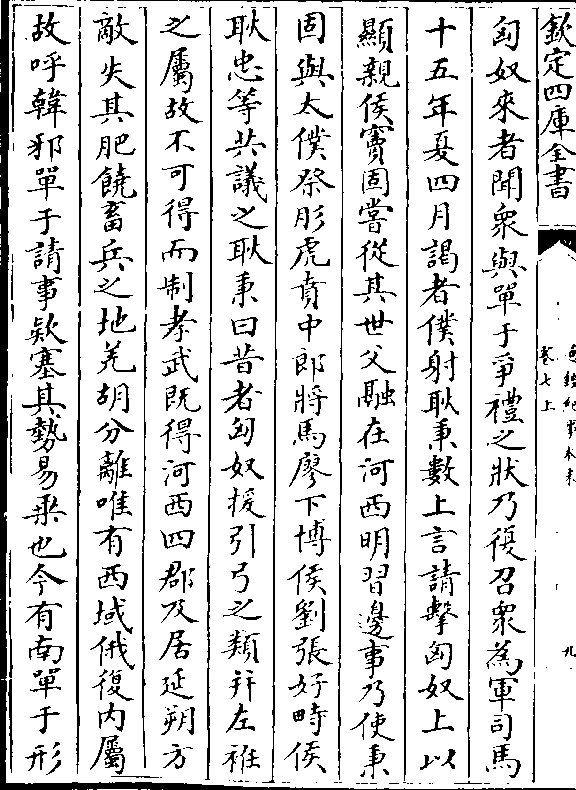 欽定四庫全書
卷七上
九
匈奴來者聞衆與單于爭禮之狀乃復召衆為軍司馬
十五年夏四月謁者僕射耿秉數上言請擊匈奴上以
顯親侯竇固嘗從其世父融在河西明習邊事乃使秉
固與太僕祭肜虎賁中郎將馬廖下博侯劉張好畤侯
耿忠等共議之耿秉曰昔者匈奴援引弓之類幷左袵
之屬故不可得而制孝武既得河西四郡及居延朔方
敵失其肥饒畜兵之地羌胡分離唯有西域俄復内屬
故呼韓邪單于請事欵塞其勢易乗也今有南單于形